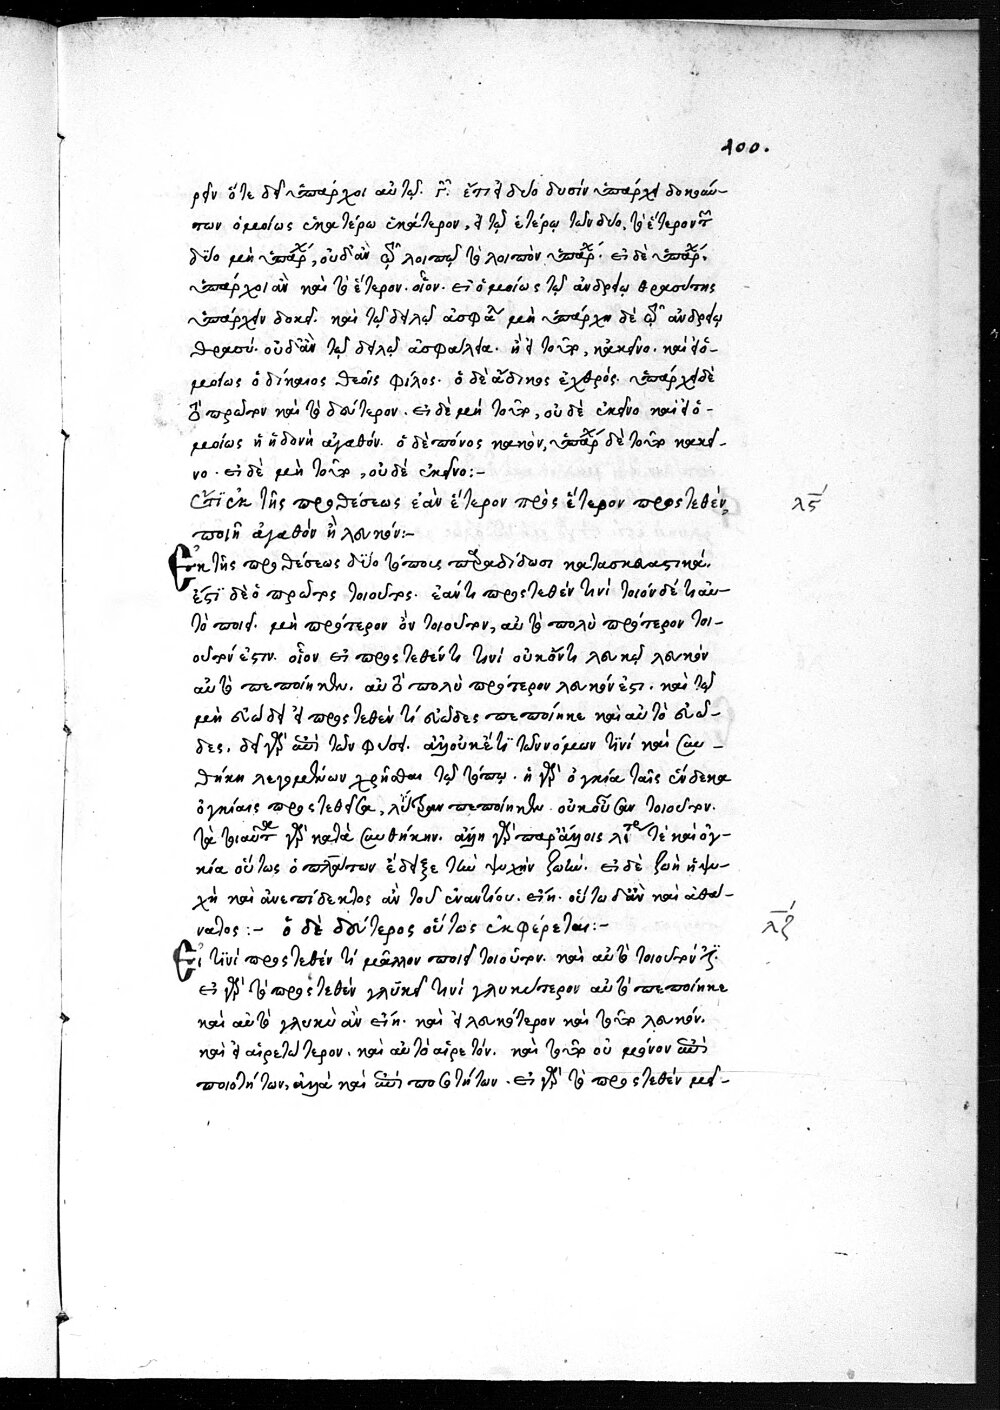 100.
ρον ὅτε δεῖ ὑπάρχοι αὐτῷ. γ. ἔτι εἰ δύο δυσὶν ὑπάρχει δοκούν-
των ὁμοίως ἑκατέρω ἑκάτερον, εἰ τῷ ἑτέρῳ τῶν δύο, τὸ ἕτερον τῶν
δύο μὴ ὑπάρχει, οὐδ' ἂν τῷ λοιπῷ τὸ λοιπὸν ὑπάρχοι. εἰ δὲ ὑπάρχει,
ὑπάρχοι ἂν καὶ τὸ ἕτερον. οἷον. εἰ ὁμοίως τῷ ἀνδρείῳ θρασύτης
ὑπάρχειν δοκεῖ. καὶ τῷ δειλῷ ἀσφάλεια μὴ ὑπάρχη δὲ τῷ ἀνδρείῳ
θρασύ. οὐδ' ἂν τῷ δειλῷ ἀσφαλεια. ἢ εἰ τοῦτο, κἀκεῖνο. καὶ εἰ ὁ-
μοίως ὁ δίκαιος θεοῖς φίλος. ὁ δὲ ἄδικος ἐχθρός. ὑπάρχει δὲ
τὸ πρῶτον καὶ τὸ δεύτερον. εἰ δὲ μὴ τοῦτο, οὐδὲ ἐκεῖνο καὶ εἰ ὁ-
μοίως ἡ ἡδονὴ ἀγαθόν. ὁ δὲ πόνος κακόν, ὑπάρχει δὲ τοῦτο κακεῖ-
νο. εἰ δὲ μὴ τοῦτο, οὐδὲ ἐκεῖνο:-
Ἔτι ἐκ τῆς προθέσεως ἐὰν ἕτερον πρὸς ἕτερον προστεθὲν λς
ποιῇ ἀγαθὸν ἢ λευκόν:-
Ἐκ τῆς προθέσεως δύο τόπους παραδίδωσι κατασκευαστικά.
ἔστι δὲ ὁ πρῶτος τοιοῦτος. ἐάν τι προστεθέν τινι τοιόνδέ τι αὐ-
τὸ ποιεῖ. μὴ πρότερον ὂν τοιοῦτον, αὐτὸ πολὺ πρότερον τοι-
οῦτόν ἐστιν. οἷον εἰ προστεθέν τι τινὶ οὐκ ὄντι λευκῷ λευκὸν
αὐτὸ πεποίηκεν. αὐτὸ πολὺ πρότερον λευκόν ἐστι. καὶ τῷ
μὴ εὐώδει εἰ προστεθέν τι εὐῶδες πεποίηκε καὶ αὐτὸ εὐῶ-
δες. δεῖ γὰρ ἀπὸ τῶν φύσει. ἀλλ' οὐκ ἔτι τῶν νόμων τινὶ καὶ συν-
θήκη λεγομένων χρῆσθαι τῷ τόπῳ. ἡ γὰρ ὀγκία ταῖς ἕνδεκα
ὀγκίαις προστεθεῖσα, λίτραν πεποίηκεν. οὐκ οὖσαν τοιοῦτον.
τὰ τοιαῦτα γὰρ κατὰ συνθήκην. ἄλλη γὰρ παρ' ἄλλοις λίτρα τε καὶ ὀγ-
κία οὕτως ὁ πλάτων ἔδειξε τὴν ψυχὴν ζωήν. εἰ δὲ ζωὴ ἡ ψυ-
χὴ καὶ ἀνεπίδεκτος ἂν τοῦ ἐναντίου. εἴη. οὕτω δ' ἂν καὶ ἀθά-
νατος:- ὁ δὲ δεύτερος οὕτως ἐκφέρεται:- λζ
Εἰ τινὶ προστεθέν τι μᾶλλον ποιεῖ τοιοῦτον. καὶ αὐτὸ τοιοῦτόν ἐστι.
εἰ γὰρ τὸ προστεθὲν γλυκεῖ τινὶ γλυκύτερον αὐτὸ πεποίηκε
καὶ αὐτὸ γλυκὺ ἂν εἴη. καὶ εἰ λευκότερον καὶ τοῦτο λευκόν.
καὶ εἰ αἱρετώτερον. καὶ αὐτὸ αἱρετόν. καὶ τοῦτο οὐ μόνον ἀπὸ
ποιοτήτων, ἀλλὰ καὶ ἀπὸ ποσοτήτων. εἰ γὰρ τὸ προστεθὲν μεῖ-